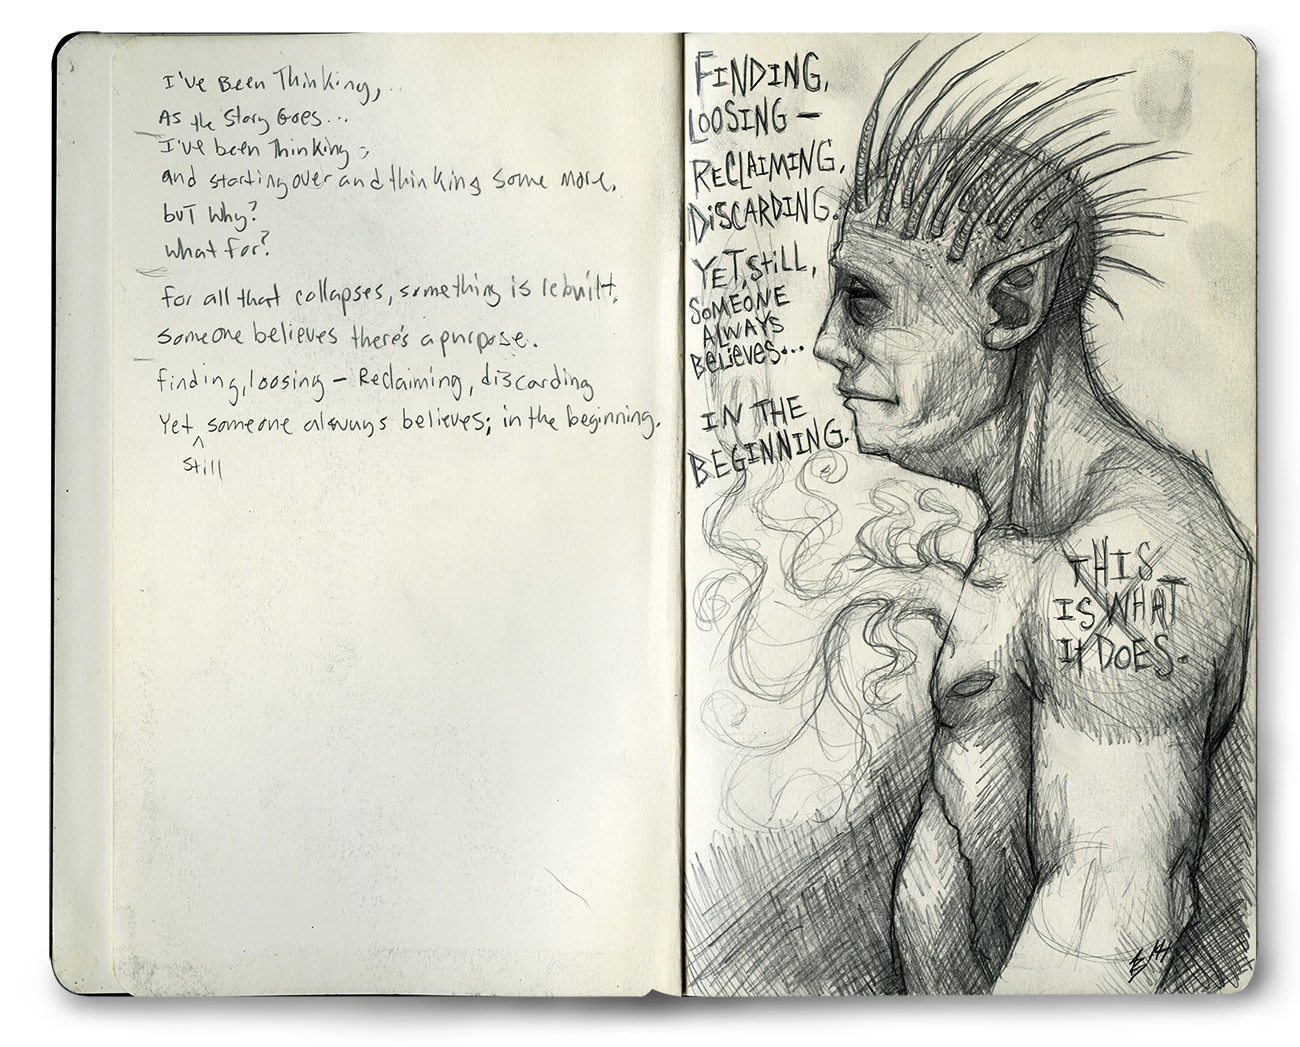 I've Been Thinking,
As the Story Goes...
I've been Thinking
and starting over and thinking some more.
but why?
What for?
for all that collapses, something is rebuilt,
someone believes there's a purpose.
finding, loosing — Reclaiming, discarding
Yet ^ someone always believes; in the beginning.
still
FINDING,
LOOSING —
RECLAIMING,
DISCARDING.
YET, STILL,
SOMEONE
ALWAYS
BELIEVES...
IN THE
BEGINNING.
THIS
IS WHAT
It DOES.